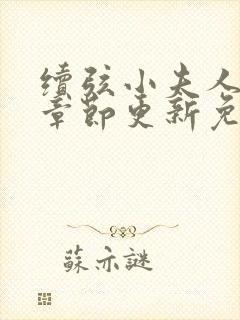 續弦小夫人
章節更新免
蘇亦謎